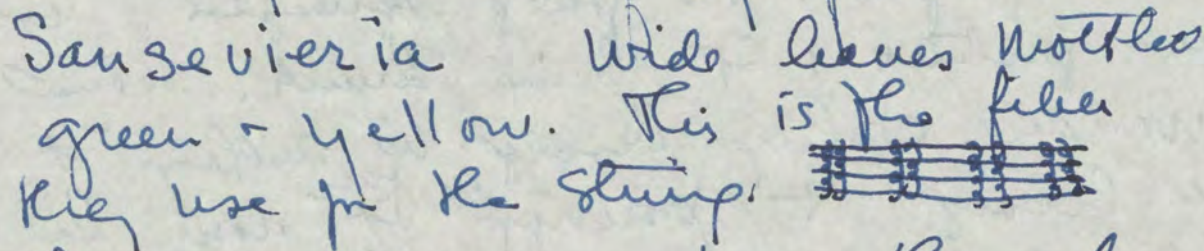 Sansevieria Wide leaves Mottled
green + yellow. This is the fiber
they use for the string.